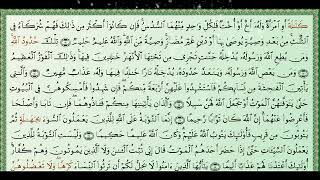 كَلَٰلَةً أَوِ ٱمْرَأَةٌ وَلَهُۥٓ أَخٌ أَوْ أُخْتٌ فَلِكُلِّ وَٰحِدٍ مِّنْهُمَا ٱلسُّدُسُ فَإِن كَانُوٓا۟ أَكْثَرَ مِن ذَٰلِكَ فَهُمْ شُرَكَآءُ فِى
ٱلثُّلُثِ مِنۢ بَعْدِ وَصِيَّةٍ يُوصَىٰ بِهَآ أَوْ دَيْنٍ غَيْرَ مُضَآرٍّ وَصِيَّةً مِّنَ ٱللَّهِ وَٱللَّهُ عَلِيمٌ حَلِيمٌ تِلْكَ حُدُودُ ٱللَّهِ
وَمَن يُطِعِ ٱللَّهَ وَرَسُولَهُۥ يُدْخِلْهُ جَنَّٰتٍ تَجْرِى مِن تَحْتِهَا ٱلْأَنْهَٰرُ خَٰلِدِينَ فِيهَا وَذَٰلِكَ ٱلْفَوْزُ ٱلْعَظِيمُ
وَمَن يَعْصِ ٱللَّهَ وَرَسُولَهُۥ وَيَتَعَدَّ حُدُودَهُۥ يُدْخِلْهُ نَارًا خَٰلِدًا فِيهَا وَلَهُۥ عَذَابٌ مُّهِينٌ وَٱلَّٰتِى
يَأْتِينَ ٱلْفَٰحِشَةَ مِن نِّسَآئِكُمْ فَٱسْتَشْهِدُوا۟ عَلَيْهِنَّ أَرْبَعَةً مِّنكُمْ فَإِن شَهِدُوا۟ فَأَمْسِكُوهُنَّ فِى ٱلْبُيُوتِ
حَتَّىٰ يَتَوَفَّىٰهُنَّ ٱلْمَوْتُ أَوْ يَجْعَلَ ٱللَّهُ لَهُنَّ سَبِيلًا وَٱلَّذَانِ يَأْتِيَٰنِهَا مِنكُمْ فَـَٔاذُوهُمَا فَإِن تَابَا
وَأَصْلَحَا فَأَعْرِضُوا۟ عَنْهُمَآ إِنَّ ٱللَّهَ كَانَ تَوَّابًا رَّحِيمًا إِنَّمَا ٱلتَّوْبَةُ عَلَى ٱللَّهِ لِلَّذِينَ يَعْمَلُونَ ٱلسُّوٓءَ بِجَهَٰلَةٍ
ثُمَّ يَتُوبُونَ مِن قَرِيبٍ فَأُو۟لَٰٓئِكَ يَتُوبُ ٱللَّهُ عَلَيْهِمْ وَكَانَ ٱللَّهُ عَلِيمًا حَكِيمًا وَلَيْسَتِ ٱلتَّوْبَةُ
لِلَّذِينَ يَعْمَلُونَ ٱلسَّيِّـَٔاتِ حَتَّىٰٓ إِذَا حَضَرَ أَحَدَهُمُ ٱلْمَوْتُ قَالَ إِنِّى تُبْتُ ٱلْـَٰٔنَ وَلَا ٱلَّذِينَ يَمُوتُونَ وَهُمْ كُفَّارٌ
أُو۟لَٰٓئِكَ أَعْتَدْنَا لَهُمْ عَذَابًا أَلِيمًا يَٰٓأَيُّهَا ٱلَّذِينَ ءَامَنُوا۟ لَا يَحِلُّ لَكُمْ أَن تَرِثُوا۟ ٱلنِّسَآءَ كَرْهًا وَلَا تَعْضُلُوهُنَّ